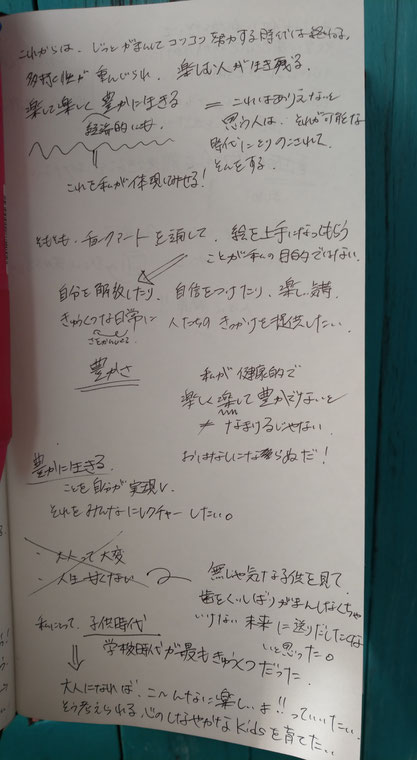 これからは、じっとがまんしてコツコツ努力する時代は終わる。
多様性が重んじられ、楽しむ人が生き残る。
楽して楽しく豊かに生きる
経済的にも
= これはありえないと
思う人は、それが可能な
時代にとりのこされて
そんをする。
これを私が体現してみせる!
そもそも、チョークアートを通して、絵を上手になってもらう
ことが私の目的ではない。
自分を解放したり、自信をつけたり、楽しい気持
きゅうくつな日常に 人たちのきっかけを提供したい。
さをかんじる
豊かさ
私が健康的で
楽しく楽して豊かでないと
≠ なまけるじゃない
おはなしにならぬだ!
豊かに生きる
ことを自分が実現し
それをみんなにレクチャーしたい。
・大人って大変
・人生甘くない
無じゃ気な子供を見て
歯をくいしばりがまんしなくちゃ
いけない未来に送りだしたくない
と思った。
私にとって、子供時代
学校時代が最もきゅうくつだった
大人になれば、こーんなに楽しいよ!!っていいたい。
そう考えられる、心のしなやかなKidsを育てたい